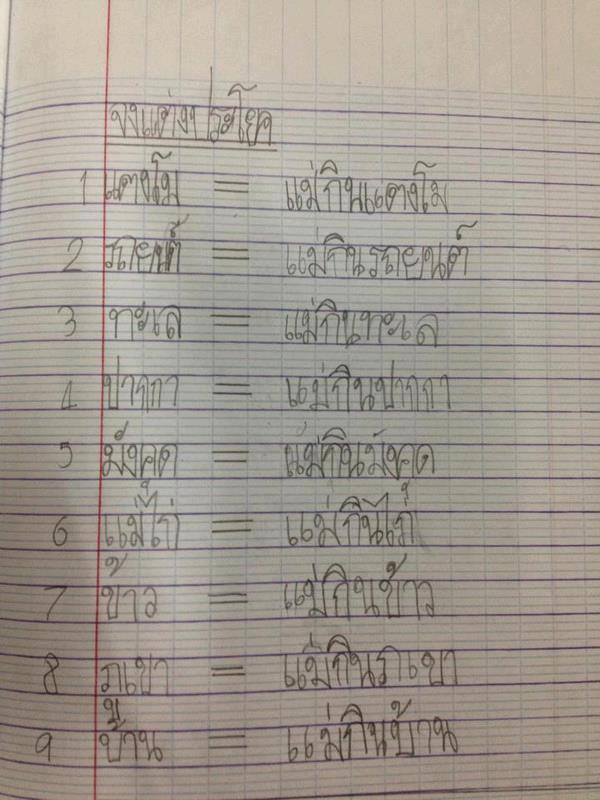 จงแต่งประโยค
1 แตงโม = แม่กินแตงโม
2 รถยนต์ = แม่กินรถยนต์
3 ทะเล = แม่กินทะเล
4 ปากกา = แม่กินปากกา
5 มังคด = แม่กินมังคด
6 แม่ไก่ = แม่กินไก่
7 ข้าว = แม่กินข้าว
8 ภเขา = แม่กินภเขา
9 บ้าน = แม่กินบ้าน